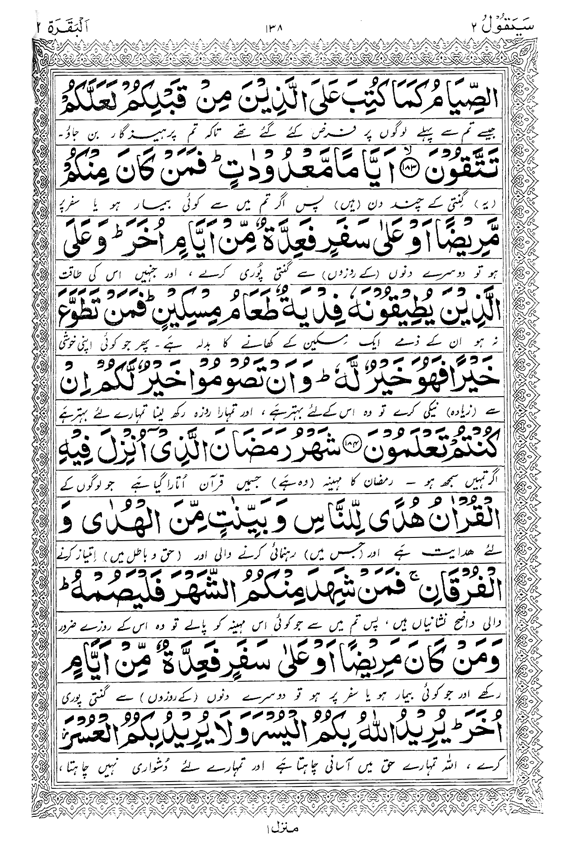 سَيَقُولُ ٢
١٣٨
اَلْبَقَرَة ٢
الصِّيَامُ كَمَا كُتِبَ عَلَى الَّذِيْنَ مِنْ قَبْلِكُمْ لَعَلَّكُمْ
جیسے تم سے پہلے لوگوں پر فرض کئے گئے تھے تاکہ تم پرہیزگار بن جاؤ۔
تَتَّقُوْنَ ﴿١٨٣﴾ اَيَّامًا مَّعْدُوْدٰتٍ ؕ فَمَنْ كَانَ مِنْكُمْ
(یہ) گنتی کے چند دن (ہیں) پس اگر تم میں سے کوئی بیمار ہو یا سفر پر
مَّرِيْضًا اَوْ عَلٰى سَفَرٍ فَعِدَّةٌ مِّنْ اَيَّامٍ اُخَرَ ؕ وَعَلَى
ہو تو دوسرے دنوں (کے روزوں) سے گنتی پوری کرے، اور جنہیں اس کی طاقت
الَّذِيْنَ يُطِيْقُوْنَهٗ فِدْيَةٌ طَعَامُ مِسْكِيْنٍ ؕ فَمَنْ تَطَوَّعَ
نہ ہو ان کے ذمے ایک مسکین کے کھانے کا بدلہ ہے۔ پھر جو کوئی اپنی خوشی
خَيْرًا فَهُوَ خَيْرٌ لَّهٗ ؕ وَاَنْ تَصُوْمُوْا خَيْرٌ لَّكُمْ اِنْ
سے (زیادہ) نیکی کرے تو وہ اس کے لئے بہتر ہے، اور تمہارا روزہ رکھ لینا تمہارے لئے بہتر ہے
كُنْتُمْ تَعْلَمُوْنَ ﴿١٨٤﴾ شَهْرُ رَمَضَانَ الَّذِيْٓ اُنْزِلَ فِيْهِ
اگر تمہیں سمجھ ہو ۔ رمضان کا مہینہ (وہ ہے) جسمیں قرآن اُتارا گیا ہے جو لوگوں کے
الْقُرْاٰنُ هُدًى لِّلنَّاسِ وَبَيِّنٰتٍ مِّنَ الْهُدٰى وَ
لئے ھدایت ہے اور (جس میں) رہنمائی کرنے والی اور (حق و باطل میں) امتیاز کرنے
الْفُرْقَانِ ۚ فَمَنْ شَهِدَ مِنْكُمُ الشَّهْرَ فَلْيَصُمْهُ ؕ
والی واضح نشانیاں ہیں، پس تم میں سے جو کوئی اس مہینہ کو پالے تو وہ اس کے روزے ضرور
وَمَنْ كَانَ مَرِيْضًا اَوْ عَلٰى سَفَرٍ فَعِدَّةٌ مِّنْ اَيَّامٍ
رکھے اور جو کوئی بیمار ہو یا سفر پر ہو تو دوسرے دنوں (کے روزوں) سے گنتی پوری
اُخَرَ ؕ يُرِيْدُ اللّٰهُ بِكُمُ الْيُسْرَ وَلَا يُرِيْدُ بِكُمُ الْعُسْرَ ؗ
کرے، اللہ تمہارے حق میں آسانی چاہتا ہے اور تمہارے لئے دُشواری نہیں چاہتا،
منزل ١